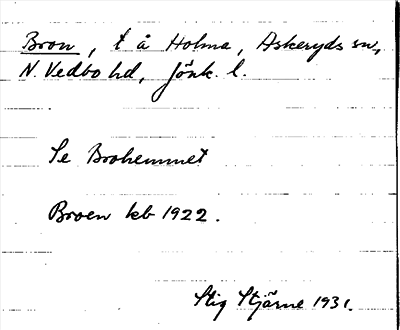 Bron, t å Holma, Askeryds sn,
N. Vedbo hd, Jönk. l.
Se Brohemmet
Broen kb 1922.
Stig Stjärne 1931.